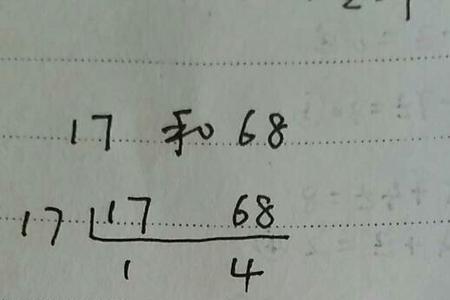 17 和 68
17 17 68
1 4